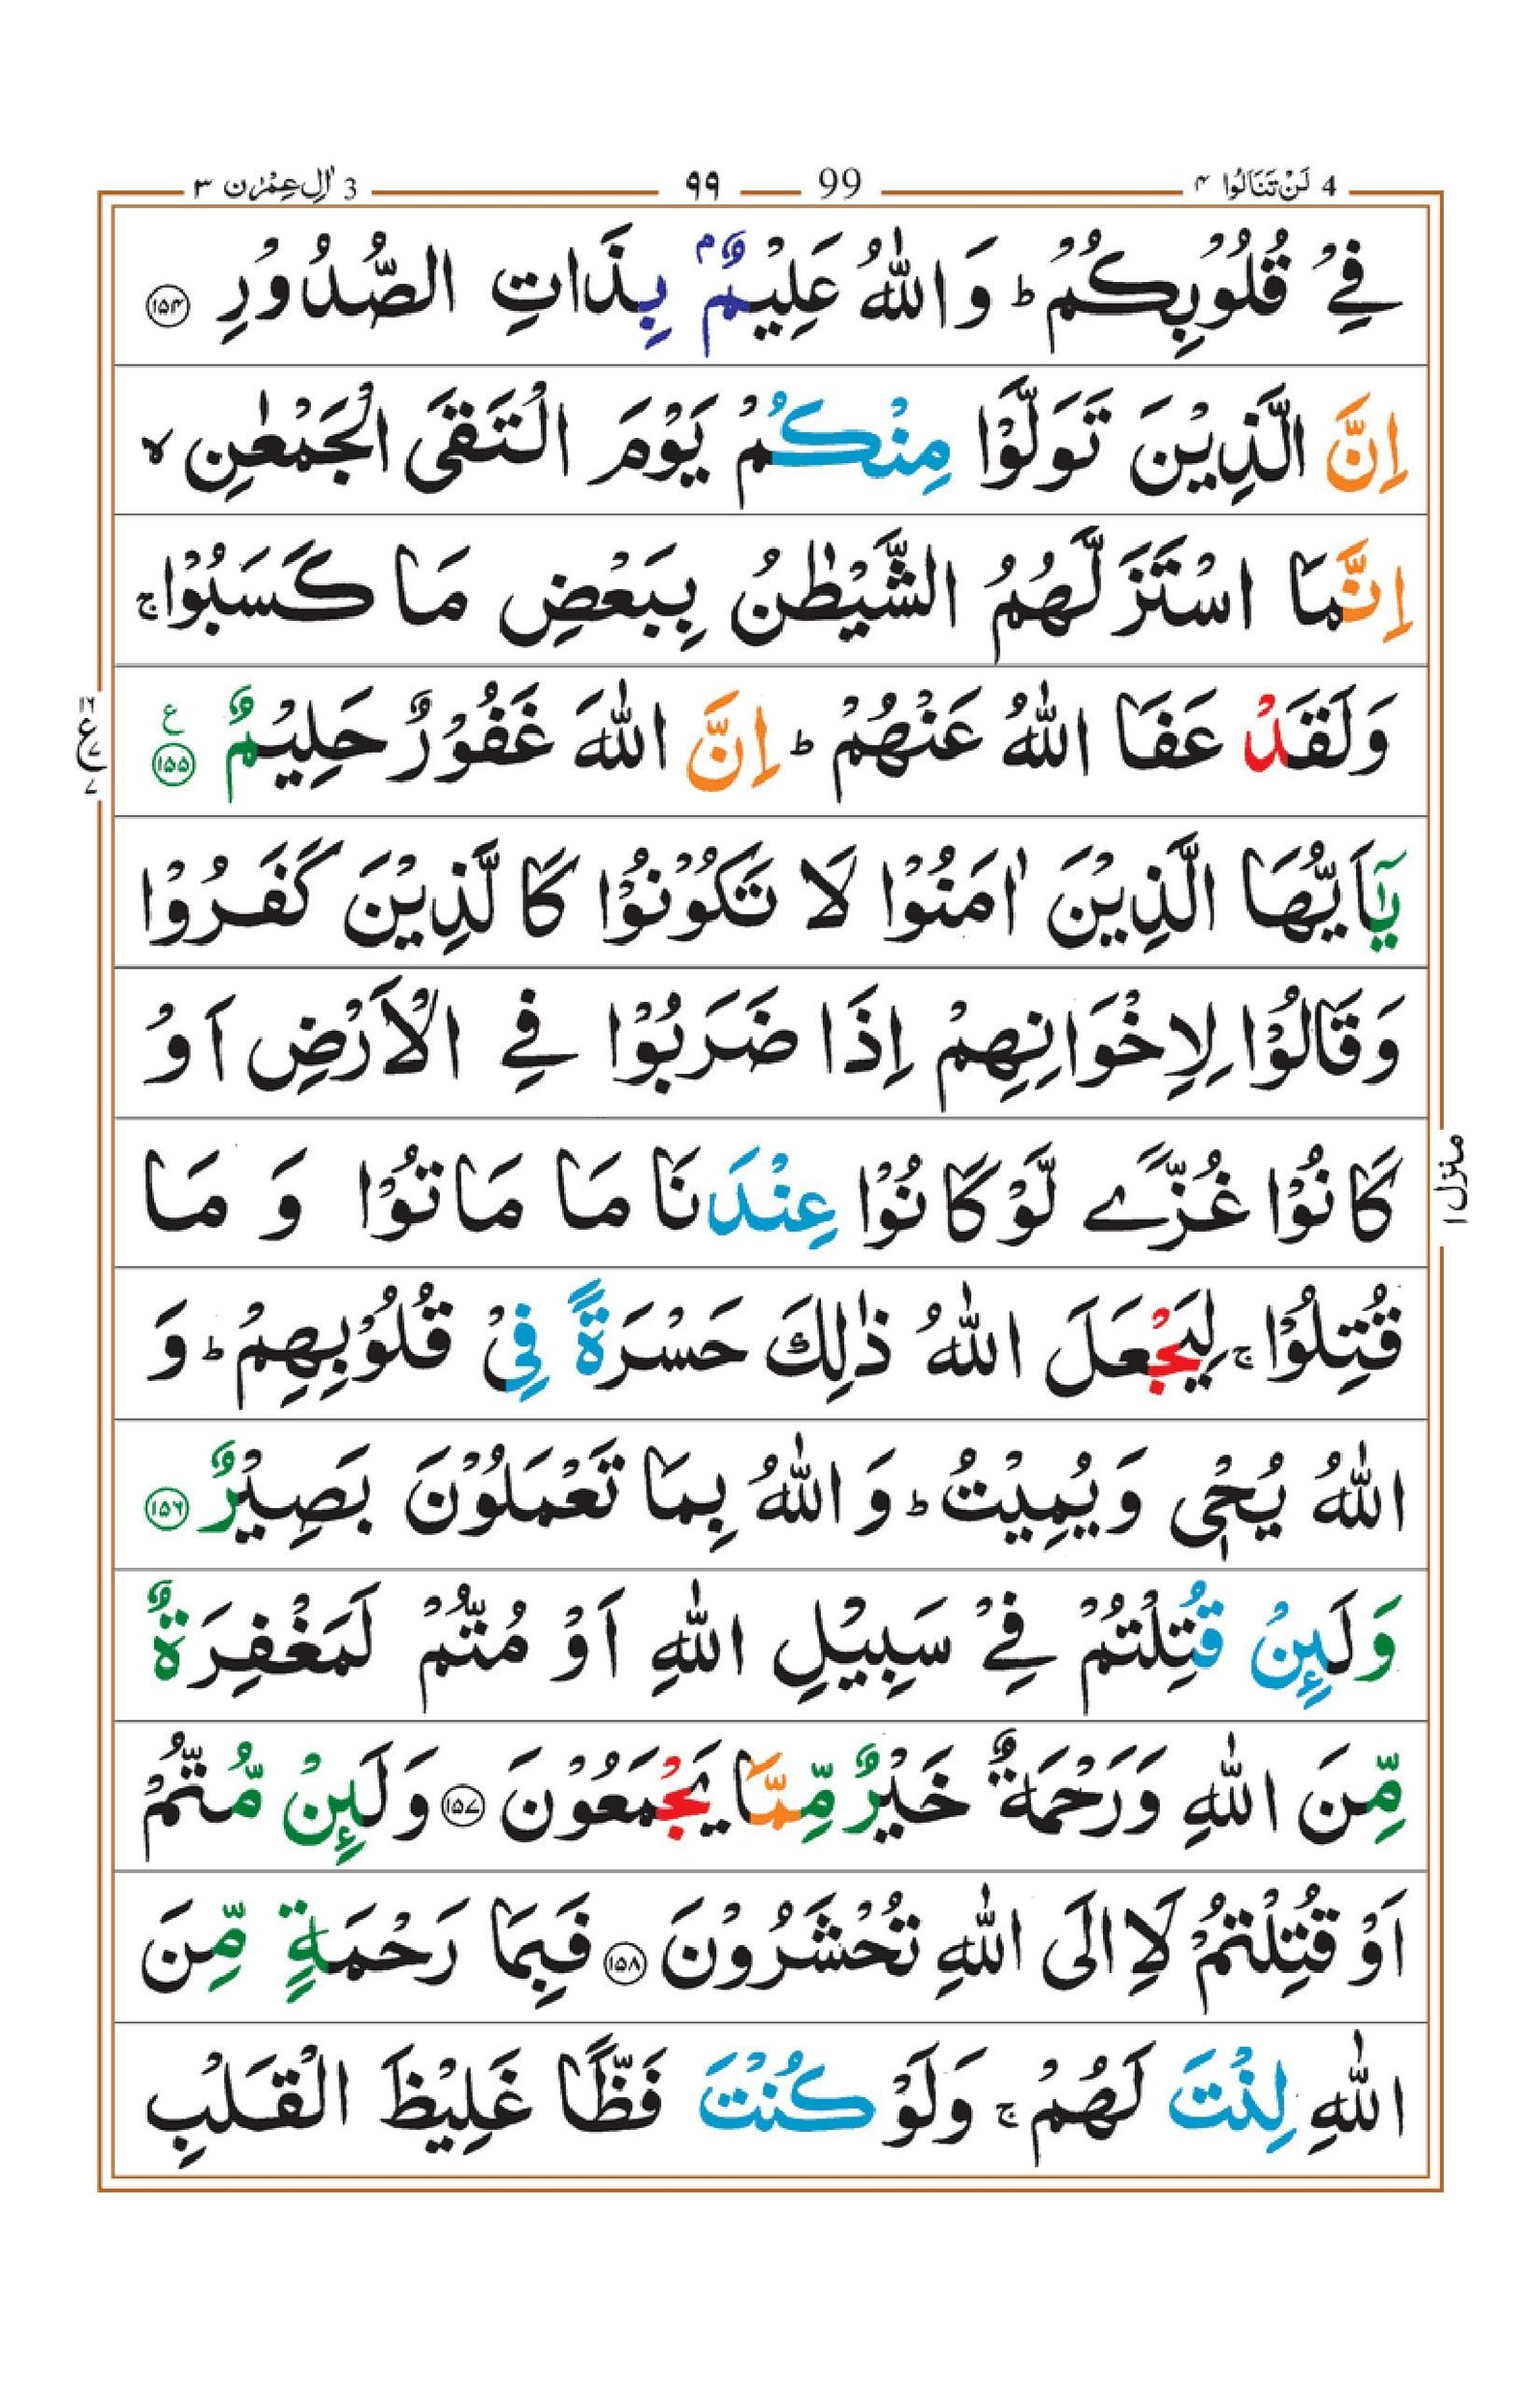 4 لَنۡ تَنَالُوا ۴ 99 ۹۹ 3 اٰلِ عِمۡرٰن ۳
فِىۡ قُلُوۡبِكُمۡ‌ؕ وَاللّٰهُ عَلِيۡمٌۢ بِذَاتِ الصُّدُوۡرِ ﴿۱۵۴﴾
اِنَّ الَّذِيۡنَ تَوَلَّوۡا مِنۡكُمۡ يَوۡمَ الۡتَقَى الۡجَمۡعٰنِۙ
اِنَّمَا اسۡتَزَلَّهُمُ الشَّيۡطٰنُ بِبَعۡضِ مَا كَسَبُوۡا‌ۚ
وَلَقَدۡ عَفَا اللّٰهُ عَنۡهُمۡ‌ؕ اِنَّ اللّٰهَ غَفُوۡرٌ حَلِيۡمٌ ﴿۱۵۵﴾ ع
۱۶
ع
۷
۷
يٰۤاَيُّهَا الَّذِيۡنَ اٰمَنُوۡا لَا تَكُوۡنُوۡا كَالَّذِيۡنَ كَفَرُوۡا
وَقَالُوۡا لِاِخۡوَانِهِمۡ اِذَا ضَرَبُوۡا فِى الۡاَرۡضِ اَوۡ
كَانُوۡا غُزًّے لَّوۡ كَانُوۡا عِنۡدَنَا مَا مَاتُوۡا وَ مَا
منزل ۱
قُتِلُوۡا‌ۚ لِيَجۡعَلَ اللّٰهُ ذٰلِكَ حَسۡرَةً فِىۡ قُلُوۡبِهِمۡ‌ؕ وَ
اللّٰهُ يُحۡىٖ وَيُمِيۡتُ‌ؕ وَاللّٰهُ بِمَا تَعۡمَلُوۡنَ بَصِيۡرٌ ﴿۱۵۶﴾
وَلَئِنۡ قُتِلۡتُمۡ فِىۡ سَبِيۡلِ اللّٰهِ اَوۡ مُتُّمۡ لَمَغۡفِرَةٌ
مِّنَ اللّٰهِ وَرَحۡمَةٌ خَيۡرٌ مِّمَّا يَجۡمَعُوۡنَ ﴿۱۵۷﴾ وَلَئِنۡ مُّتُّمۡ
اَوۡ قُتِلۡتُمۡ لَاِالَى اللّٰهِ تُحۡشَرُوۡنَ ﴿۱۵۸﴾ فَبِمَا رَحۡمَةٍ مِّنَ
اللّٰهِ لِنۡتَ لَهُمۡ‌ۚ وَلَوۡ كُنۡتَ فَظًّا غَلِيۡظَ الۡقَلۡبِ